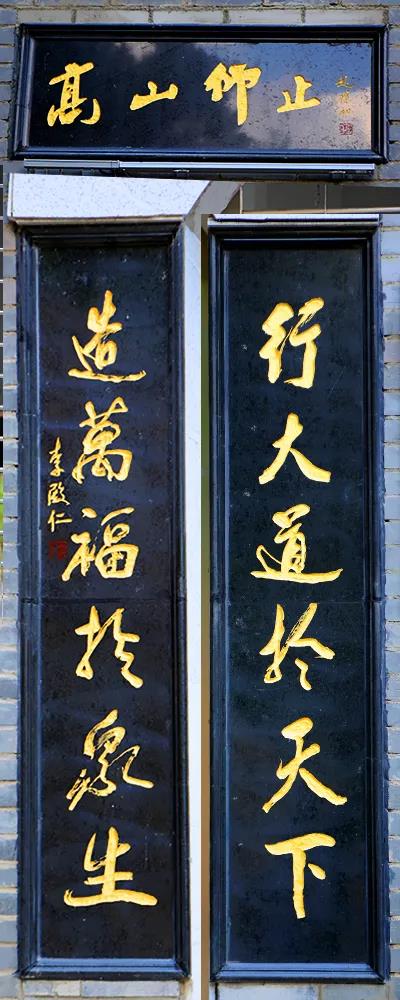 高山仰止
行大道於天下
造萬福於眾生
李啟仁